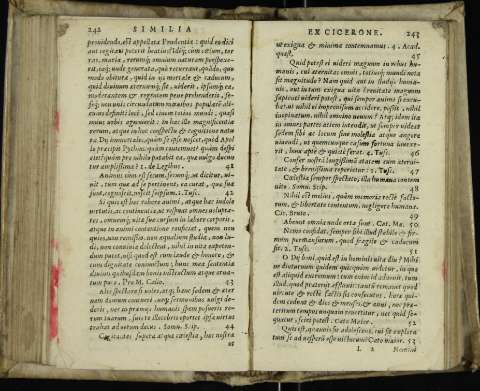 242 SIMILIA
providendo, est appellata Prudentia: quid eo dici
aut cogitari poterit beatius? Idq́; cum cœlum, ter-
ras, maria, rerumq́; omnium naturam perspexe-
rit, eaq́; unde generata, quò recurrant, quãdo, quo
modo obitura, quid in iis mortale & caducum,
quid divinum æternumq́; sit, viderit, ipsumq́; ea
moderantem & regentem penè prehenderit, sese-
q́; non unis circumdatum mœnibus popularē ali-
cuius definiti loci, sed civem totius mundi, quasi
unius urbis agnoverit: in hac ille magnificentia
rerum, atque in hoc conspectu & cognitione natu-
ræ, Dij immortales, quàm se ipse noscet, quod Apol
lo præcepit Pythius: quàm contemnet, quàm despi
ciet, quàm pro nihilo putabit ea, quæ vulgò ducun
tur amplissima? 1. de Legibus. 41
Animus cum est secum, secumq́; ut dicitur, vi-
vit, tum quæ ad se pertinent, ea curat, quæ sua
sunt, cognoscit, noscit seipsum. 1. Tusc. 42
Si quis est hoc robore animi, atque hac indole
virtutis, ac continentiæ, ut respuat omnes volupta-
tes, omnemq́; vitæ suæ cursum in labore corporis,
atque in animi contentione conficiat, quem non
quies, non remissio, non æqualium studia, non lu-
di, non convivia delectent, nihil in vita expeten-
dum putet, nisi quod est cum laude & honore, &
cum dignitate coniunctum, hunc mea sententia
divinis quibusdam bonis instructum atque orna-
tum puto. Pro M. Cælio. 43
Altè spectare si voles, atq; hanc sedem & æter
nam domum contueri, neq́; sermonibus vulgi de-
dideris, nec in præmijs humanis spem posueris re-
rum tuarum, suis te illecebris oportet ipsa virtus
trahat ad verum decus. Somn. Scip. 44
Cogitantes supera atque cælestia, hæc nostra
ut
EX CICERONE. 243
ut exigua & minima contemnamus. 4. Acad.
quæst. 45
Quid potest ei videri magnum in rebus hu-
manis, cui æternitas omnis, totiusq́; mundi nota
sit magnitudo? Nam quid aut in studiis huma-
nis, aut in tam exigua vitæ brevitate magnum
sapienti videri potest, qui semper animo sic excu-
bat, ut nihil ei improvisum accidere possit, nihil
inopinatum, nihil omnino novum? Atq; idem ita
in omnes partes aciem intendit, ut semper videat
sedem sibi ac locum sine molestia atque angore
vivendi, ut quemcunque casum fortuna invexe-
rit, hunc aptè & quietè ferat. 4. Tusc. 46
Confer nostram longissimam ætatem cum æterni-
tate, & brevissima reperietur. 1. Tusc. 47
Cælestia semper spectato, illa humana contem
nito. Somn. Scip. 48
Nihil est melius, quàm memoria rectè facto-
rum, & libertate contentum, negligere humana.
Cic. Bruto. 49
Abeunt omnia unde orta sunt. Cat. Ma. 50
Nemo confidat, semper sibi illud stabile & fir-
mum permansurum, quod fragile & caducum
sit. 2. Tusc. 51
O Dij boni, quid est in hominis vita diu? Nihil
ne diuturnum quidem quicquam videtur, in quo
est aliquid extremum: cum enim id advenit, tum
illud, quod præteriit effluxit: tantum remanet quod
virtute & rectè factis sis consecutus, horæ qui-
dem cedunt & dies & menses & anni, nec præ-
teritum tempus unquam revertitur, nec quid se-
quatur, sciri potest. Cato Maior. 52
Quis est, quamvis sit adolescens, cui sit explora
tum se ad vesperum esse victurum? Cato maior. 53
L 2 Nemini